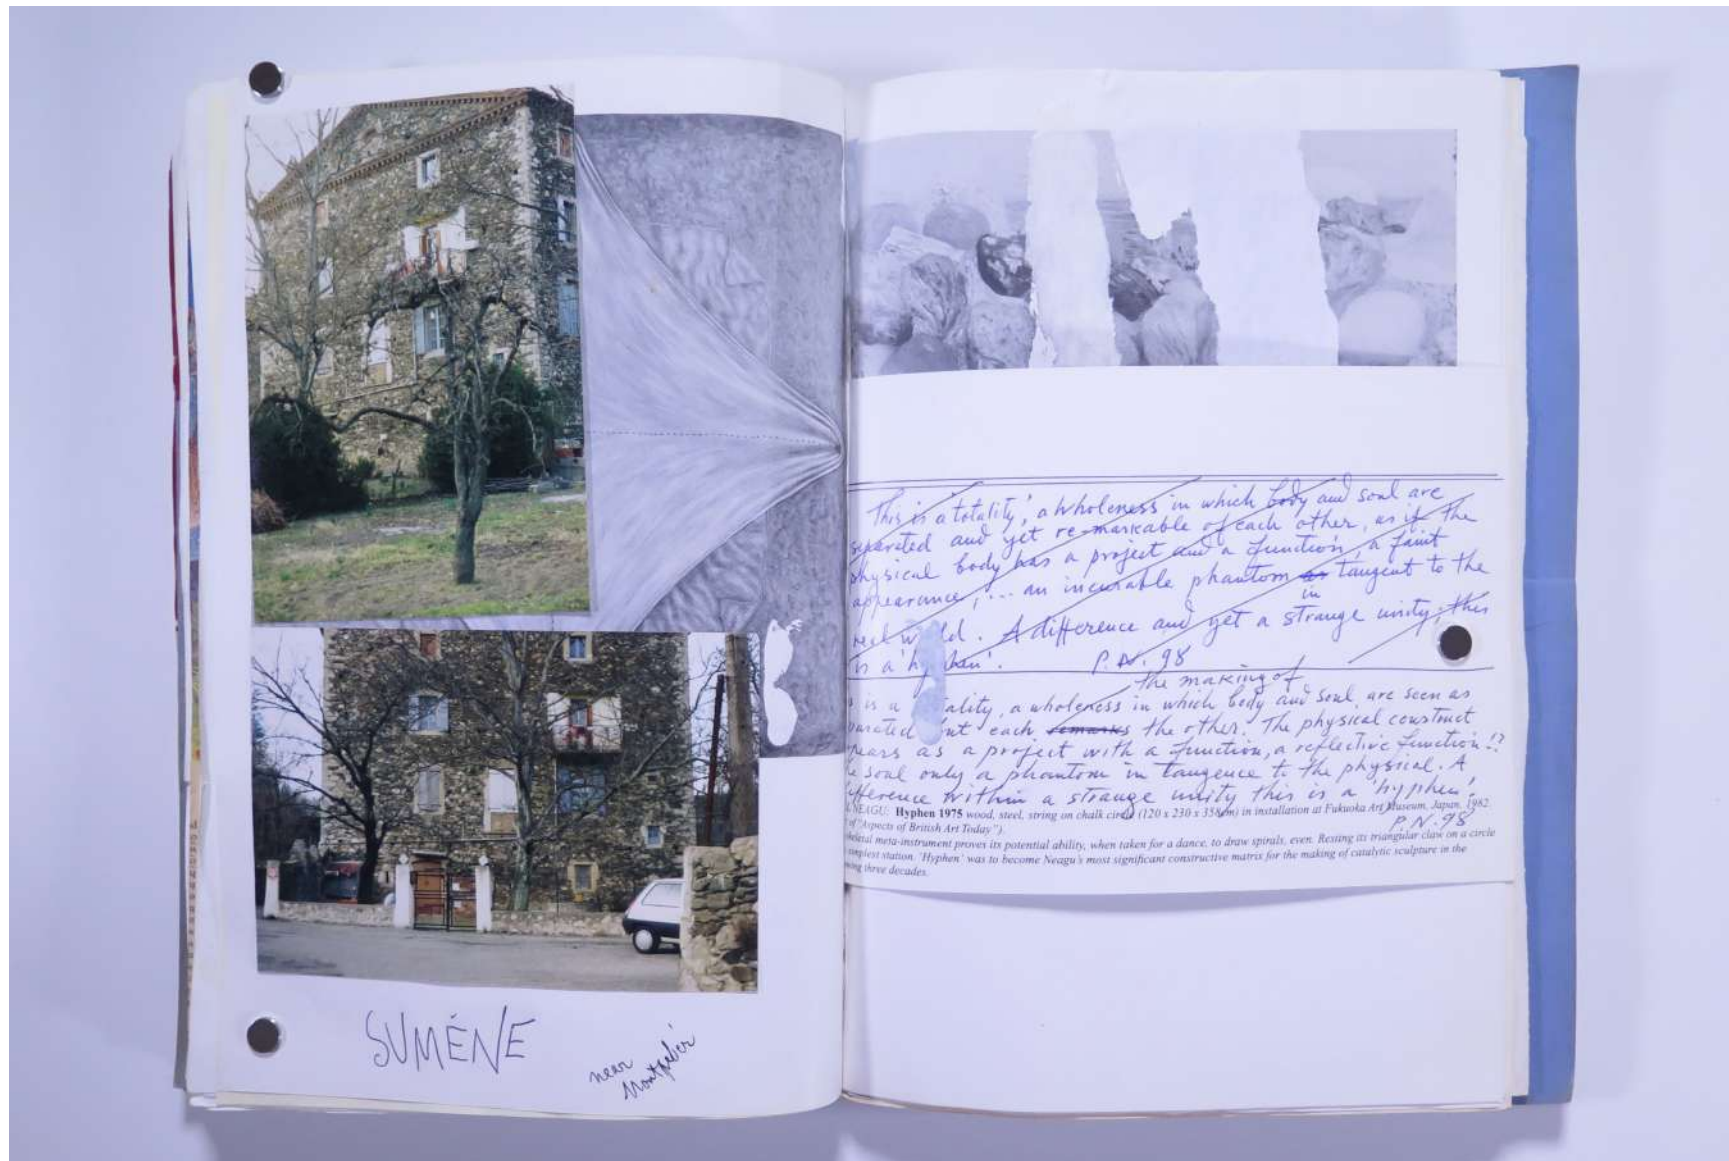 SUMÈNE
near
Montpelier
This is a totality, a wholeness in which body and soul are
separated and yet re-markable of each other, as if the
physical body has a project and a function, a faint
appearance, ... an incurable phantom as tangent to the
in
real world. A difference and yet a strange unity, this
is a 'hyphen'.
P.N. 98
the making of
is a ality, a wholeness in which body and soul, are seen as
parated but each remarks the other. The physical construct
pears as a project with a function, a reflective function!?
e soul only a phantom in tangence to the physical. A
ifference within a strange unity this is a 'hyphen'.
P.N. 98
NEAGU: Hyphen 1975 wood, steel, string on chalk circle (120 x 230 x 358cm) in installation at Fukuoka Art Museum, Japan, 1982.
of "Aspects of British Art Today").
skeletal meta-instrument proves its potential ability, when taken for a dance, to draw spirals, even. Resting its triangular claw on a circle
simplest station. 'Hyphen' was to become Neagu's most significant constructive matrix for the making of catalytic sculpture in the
three decades.